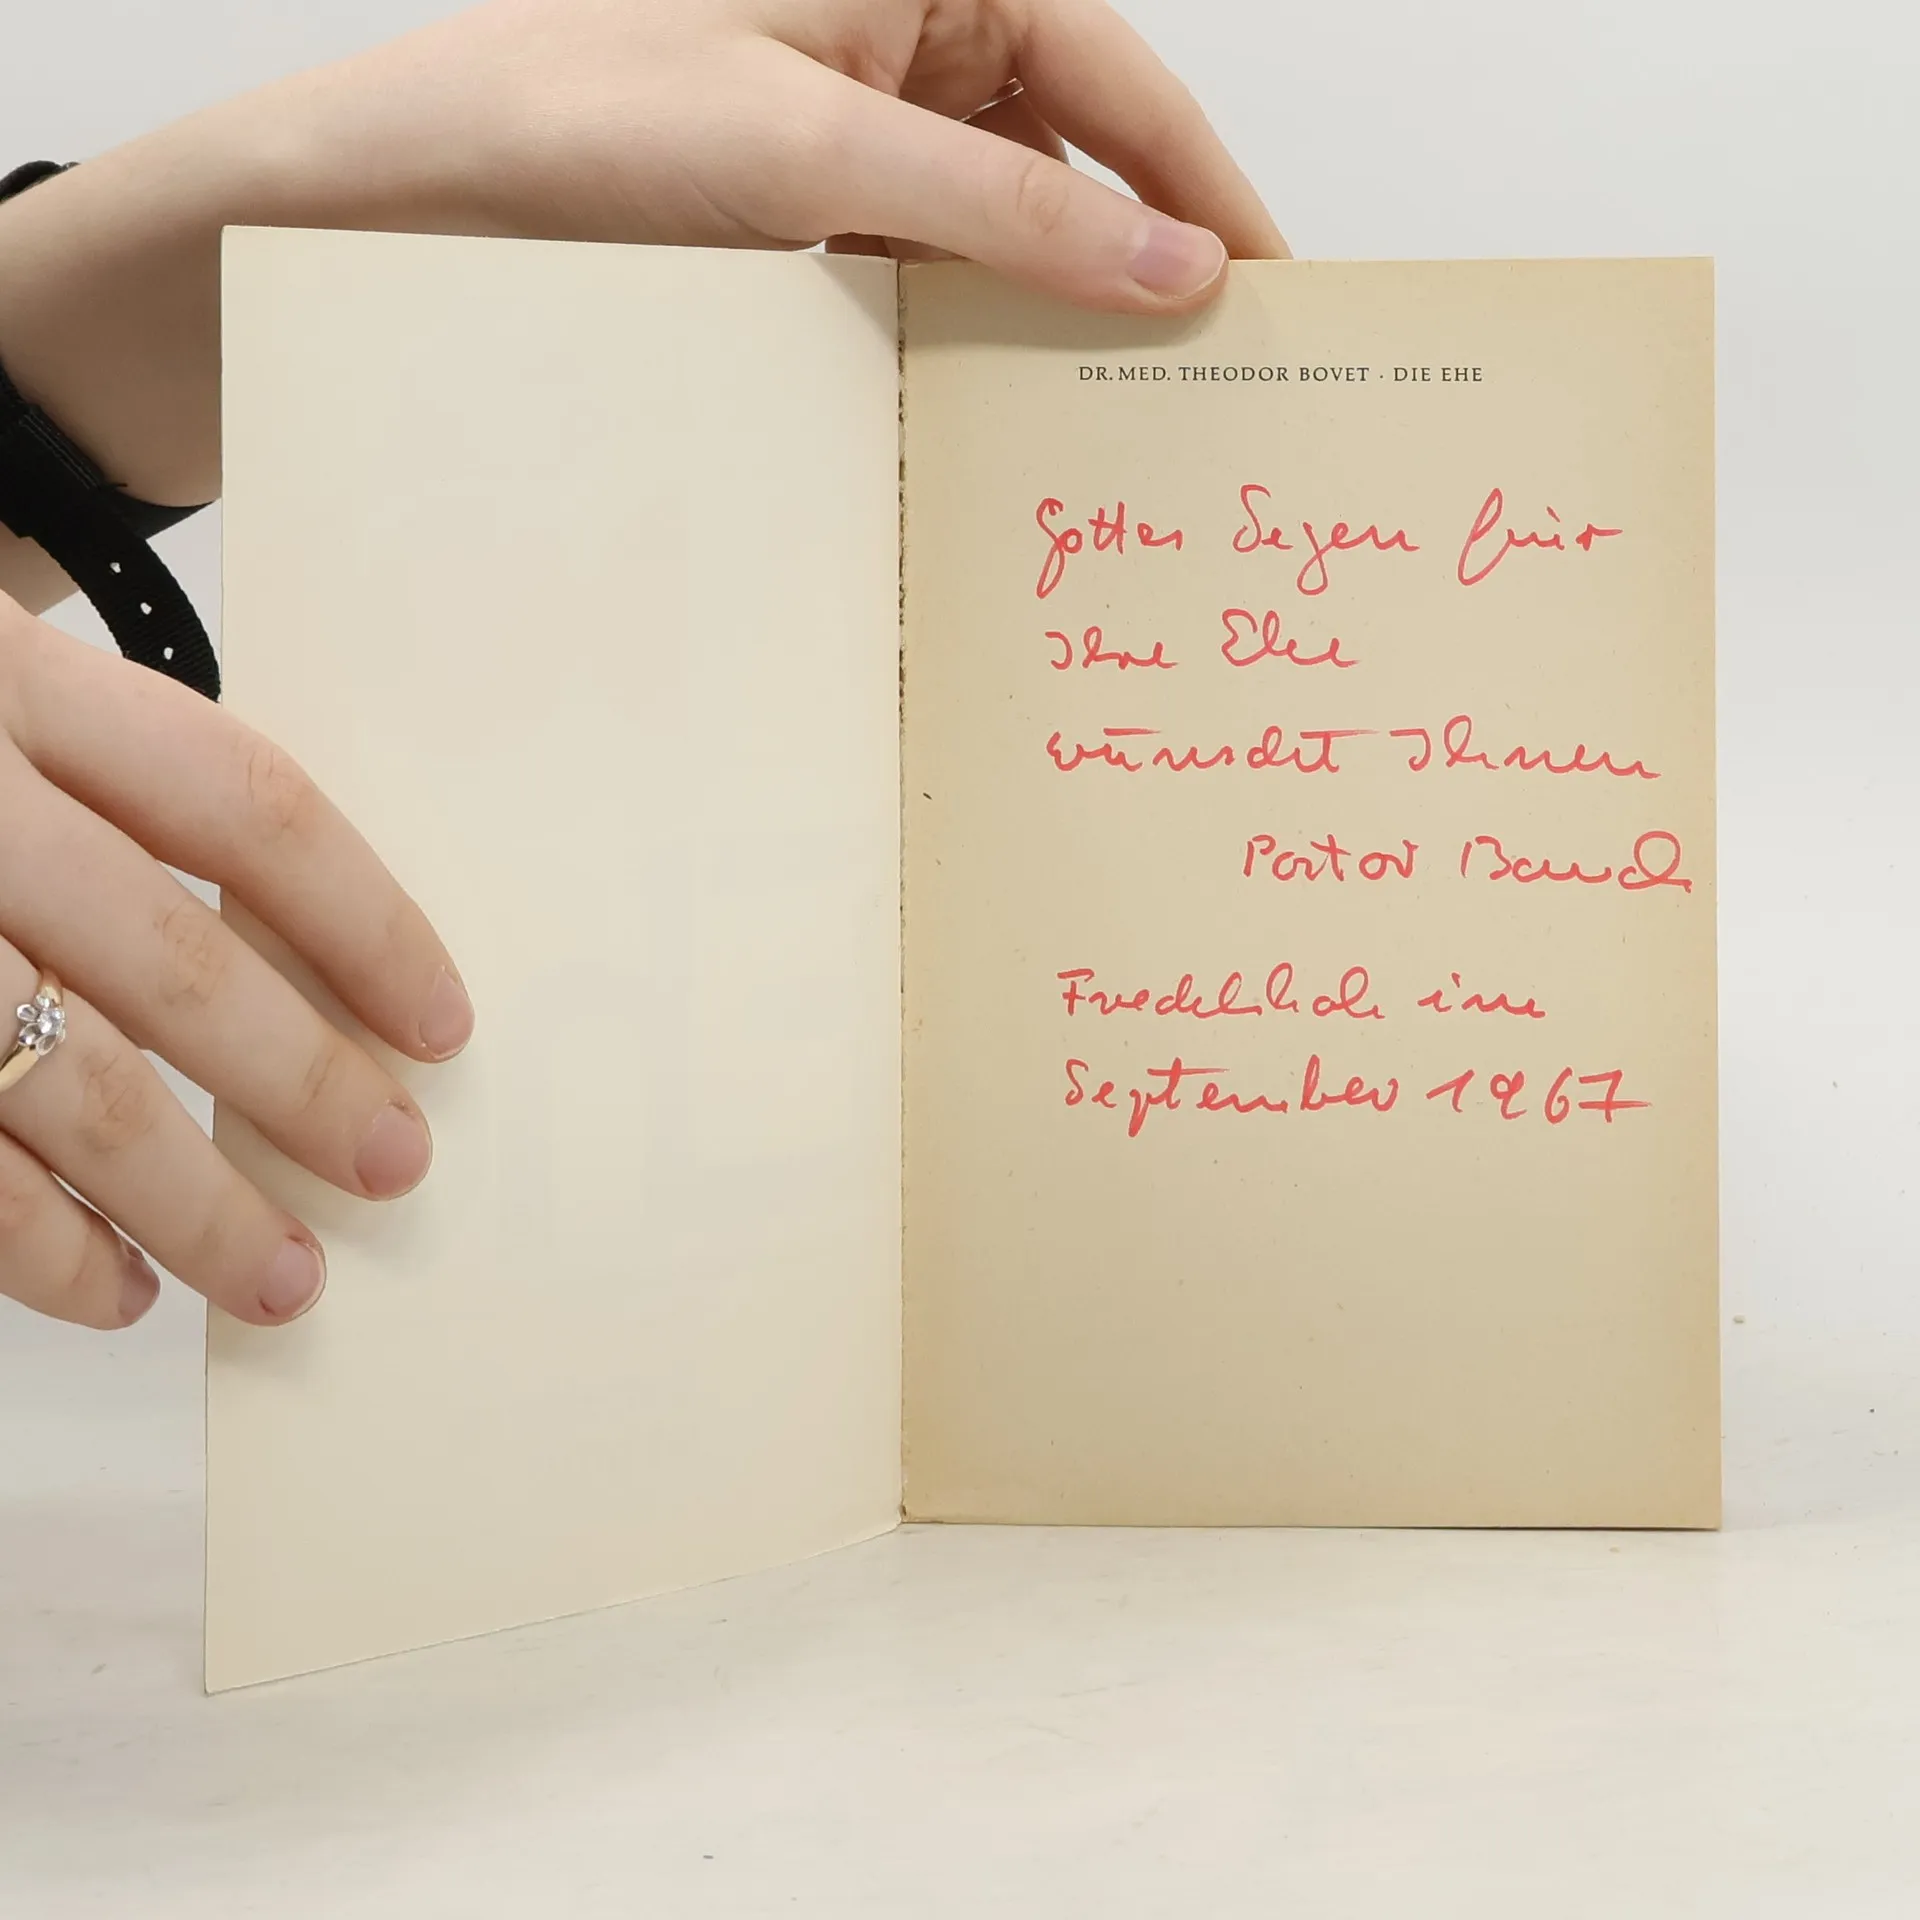 DR. MED. THEODOR BOVET · DIE EHE
Gottes Segen für
Ihre Ehe
wünscht Ihnen
Pastor
Fredelsloh im
September 1967